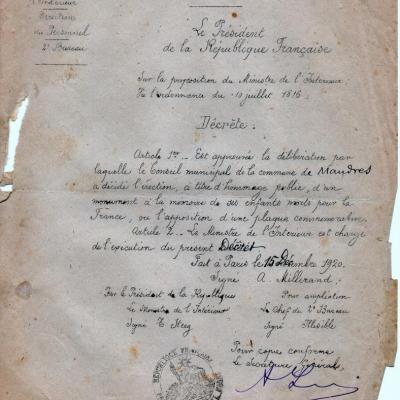 l'Intérieur
Direction
du Personnel
2e Bureau
Le Président
de la République Française
Sur la proposition du Ministre de l'Intérieur,
Vu l'ordonnance du 10 juillet 1816
Décrète :
Article 1er - Est approuvée la délibération par
laquelle le Conseil municipal de la commune de Mandres
a décidé l'érection, à titre d'hommage public, d'un
monument à la mémoire de ses enfants morts pour la
France, ou l'apposition d'une plaque commémorative.
Article 2 - Le Ministre de l'Intérieur est chargé
de l'exécution du présent Décret
Fait à Paris le 15 Décembre 1920.
Signé A. Millerand :
Par le Président de la République
Le Ministre de l'Intérieur
Signé T. Steeg
Pour ampliation
Le Chef du 2e Bureau
Signé Illisible
Pour copie conforme
Le Secrétaire Général,
REPUBLIQUE FRANÇAISE